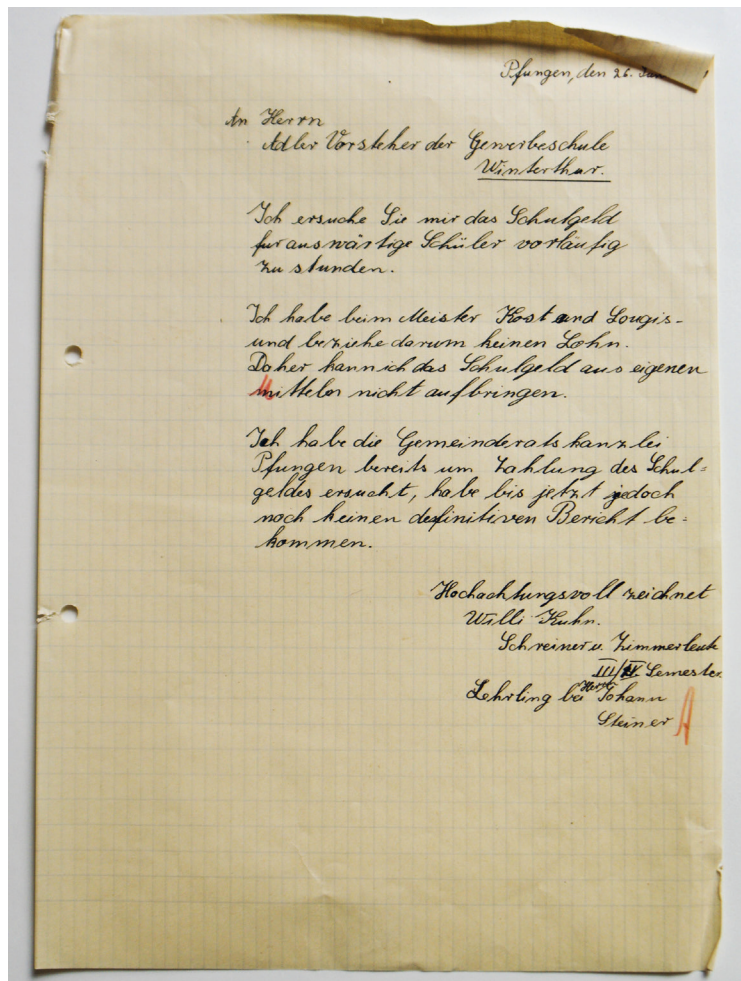 Pfungen, den 26.
An Herrn
Adler Vorsteher der Gewerbeschule
Winterthur.
Ich ersuche Sie mir das Schulgeld
fur auswärtige Schüler vorläufig
zu stunden.
Ich habe beim Meister Kost und Lougis-
und beziehe darum keinen Lohn.
Daher kann ich das Schulgeld aus eigenen
Mittelm nicht aufbringen.
Ich habe die Gemeinderatskanzlei
Pfungen bereits um Zahlung des Schul=
geldes ersucht, habe bis jetzt jedoch
noch keinen definitiven Bericht be=
kommen.
Hochachtungsvoll zeichnet
Willi Kuhn.
Schreiner u. Zimmerleute
III/IV Semester
Lehrling bei Herrn Johann
Steiner